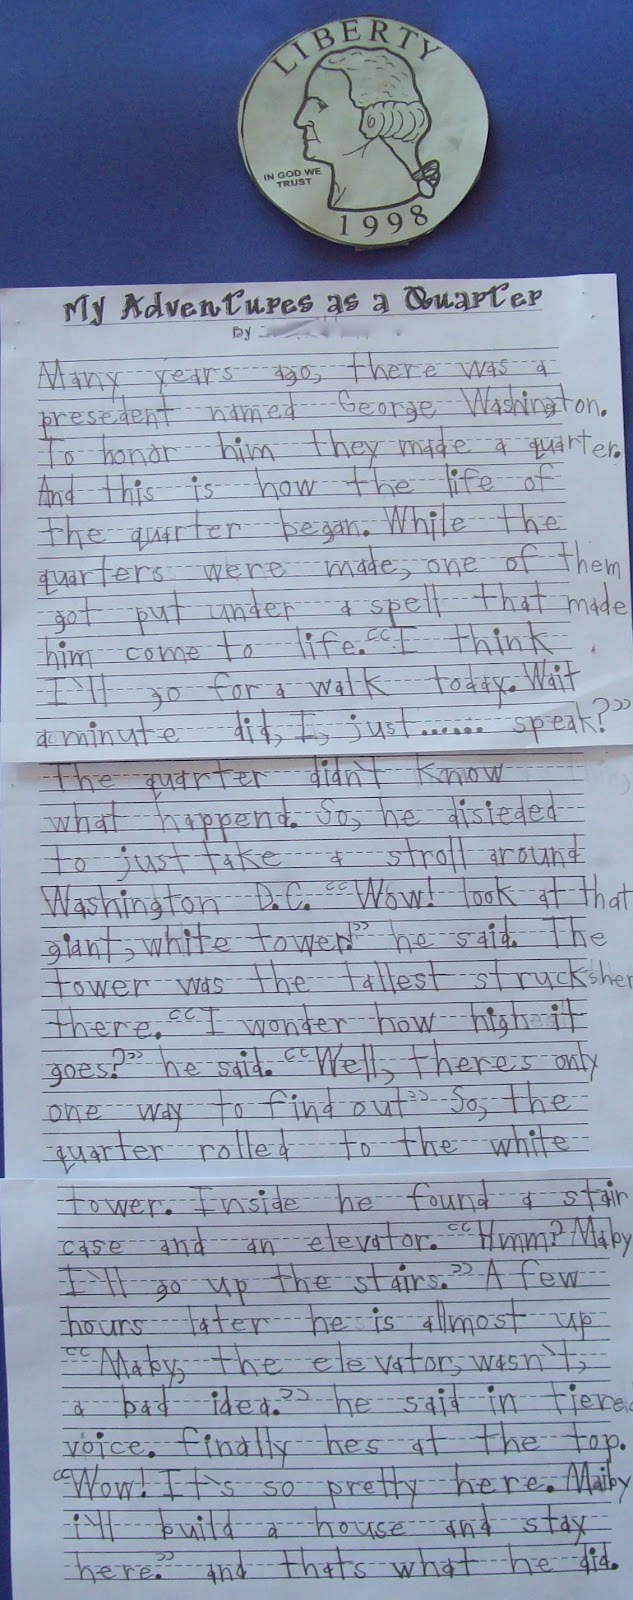 LIBERTY
IN GOD WE
TRUST
1998
My Adventures as a Quarter
By
Many years ago, there was a
presedent named George Washington.
To honor him they made a quarter.
And this is how the life of
the quarter began. While the
quarters were made, one of them
got put under a spell that made
him come to life. "I think
I'll go for a walk today. Wait
a minute did, I, just...... speak?"
The quarter didn't know
what happend. So, he disieded
to just take a stroll around
Washington D.C. "Wow! look at that
giant, white tower!" he said. The
tower was the tallest strucksher
there. "I wonder how high it
goes?" he said. "Well, theres only
one way to find out" So, the
quarter rolled to the white
tower. Inside he found a stair
case and an elevator. "Hmm? Maby
I'll go up the stairs." A few
hours later he is allmost up
"Maby, the elevator, wasn't,
a bad idea." he said in tiered
voice. finally hes at the top.
"Wow! It's so pretty here. Maiby
i'll build a house and stay
here." and thats what he did.